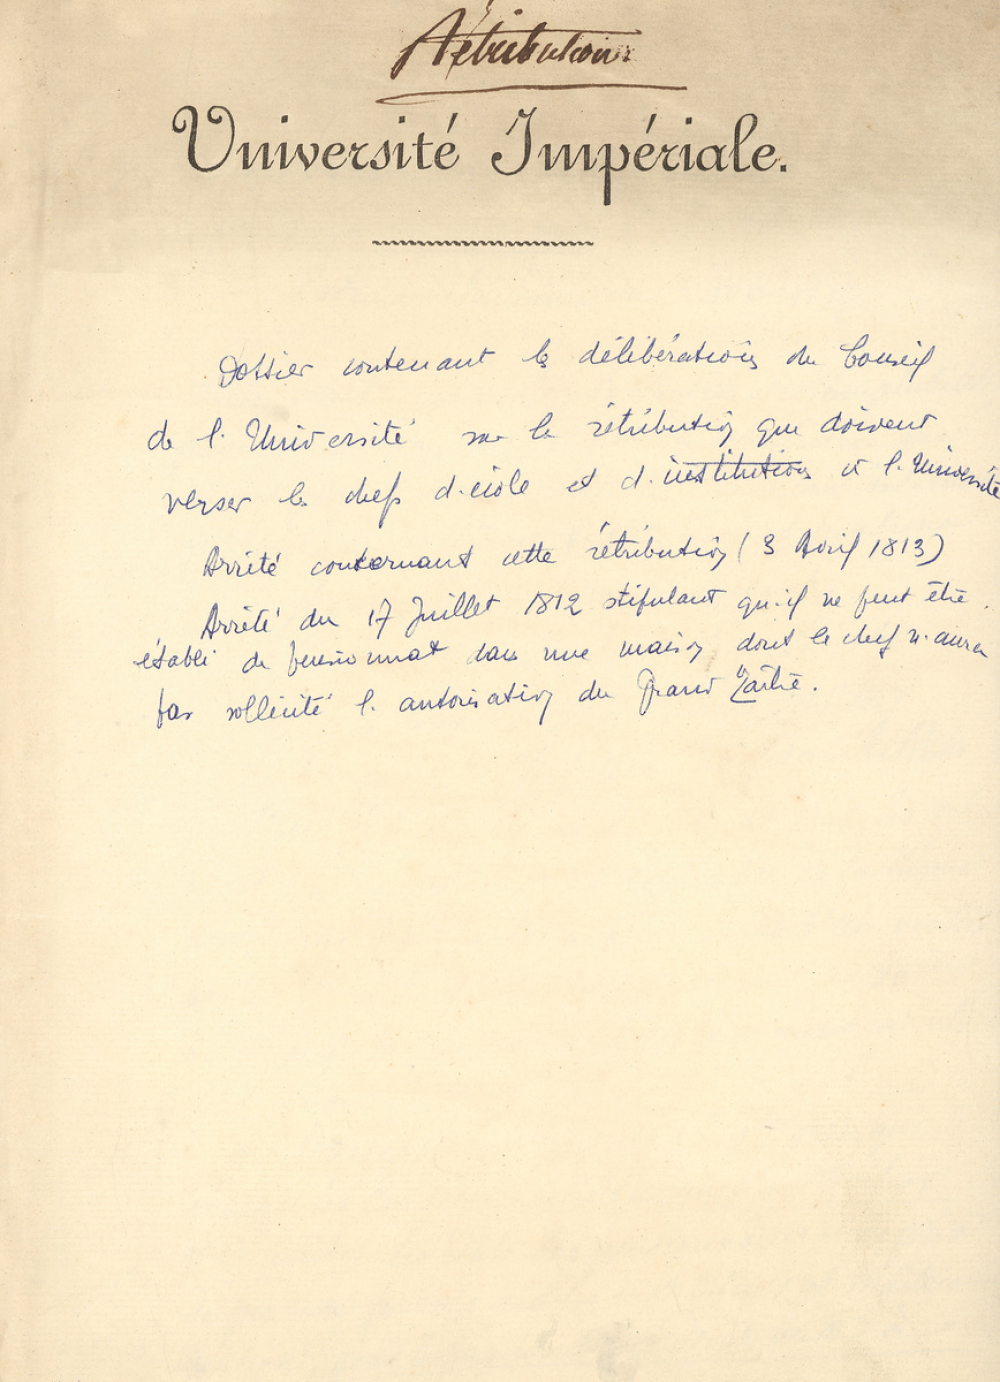 Rétributions
Université Impériale.
Dossier contenant les délibérations du Conseil
de l'Université sur la rétribution que doivent
verser les chefs d'école et d'institutions à l'Université
Arrêté concernant cette rétribution (3 Avril 1813)
Arrêté du 17 Juillet 1812 stipulant qu'il ne peut être
établi de pensionnat dans une maison dont le chef n'aura
pas sollicité l'autorisation du Grand Maître.